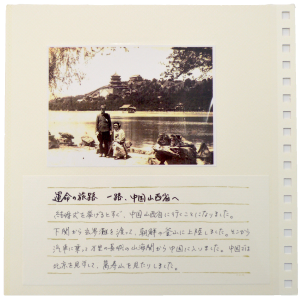 運命の旅路 一路、中国山西省へ
結婚式を挙げるとすぐ、中国山西省に行くことになりました。
下関から玄界灘を渡って、朝鮮の釜山に上陸しました。そこから
汽車に乗り、万里の長城の山海関から中国に入りました。中国では
北京を見学して、萬寿山を見たりしました。